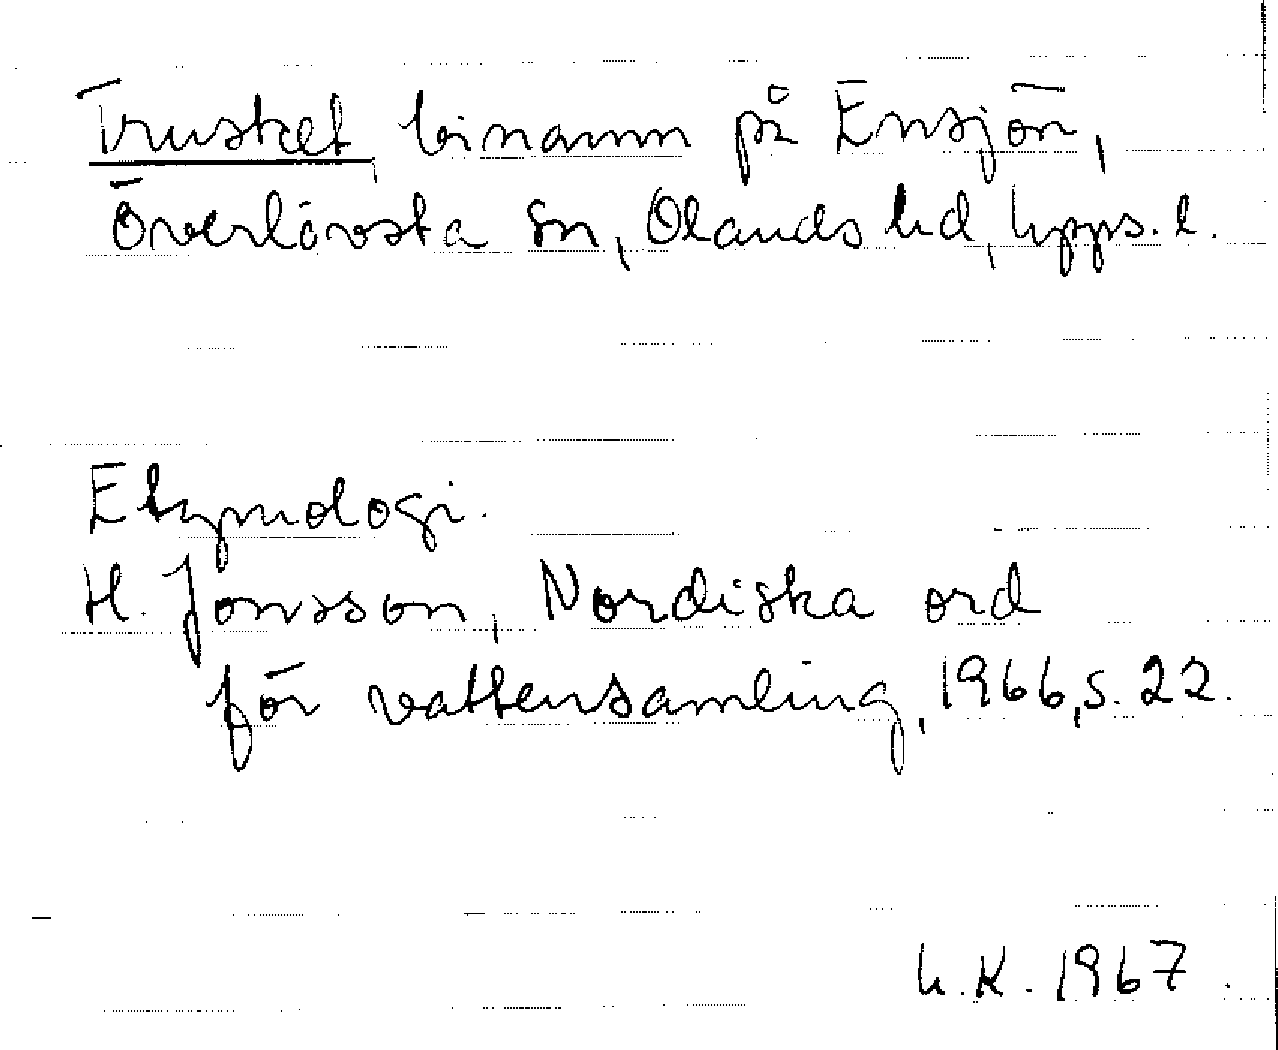 Trusket, binamn på Ensjön,
Överlövsta sn, Olands hd, Upps. l.
Etymologi.
H. Jonsson, Nordiska ord
för vattensamling, 1966, s. 22.
L.K. 1967.